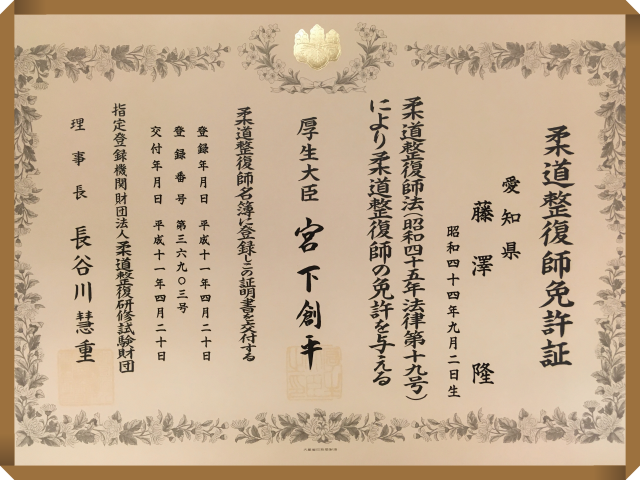 柔道整復師免許証
愛知県
藤澤 隆
昭和四十四年九月二日生
柔道整復師法(昭和四十五年法律第十九号)
により柔道整復師の免許を与える
厚生大臣 宮下創平
柔道整復師名簿に登録しこの証明書を交付する
登録年月日 平成十一年四月二十日
登録番号 第三六九〇三号
交付年月日 平成十一年四月二十日
指定登録機関財団法人柔道整復研修試験財団
理事長 長谷川慧重